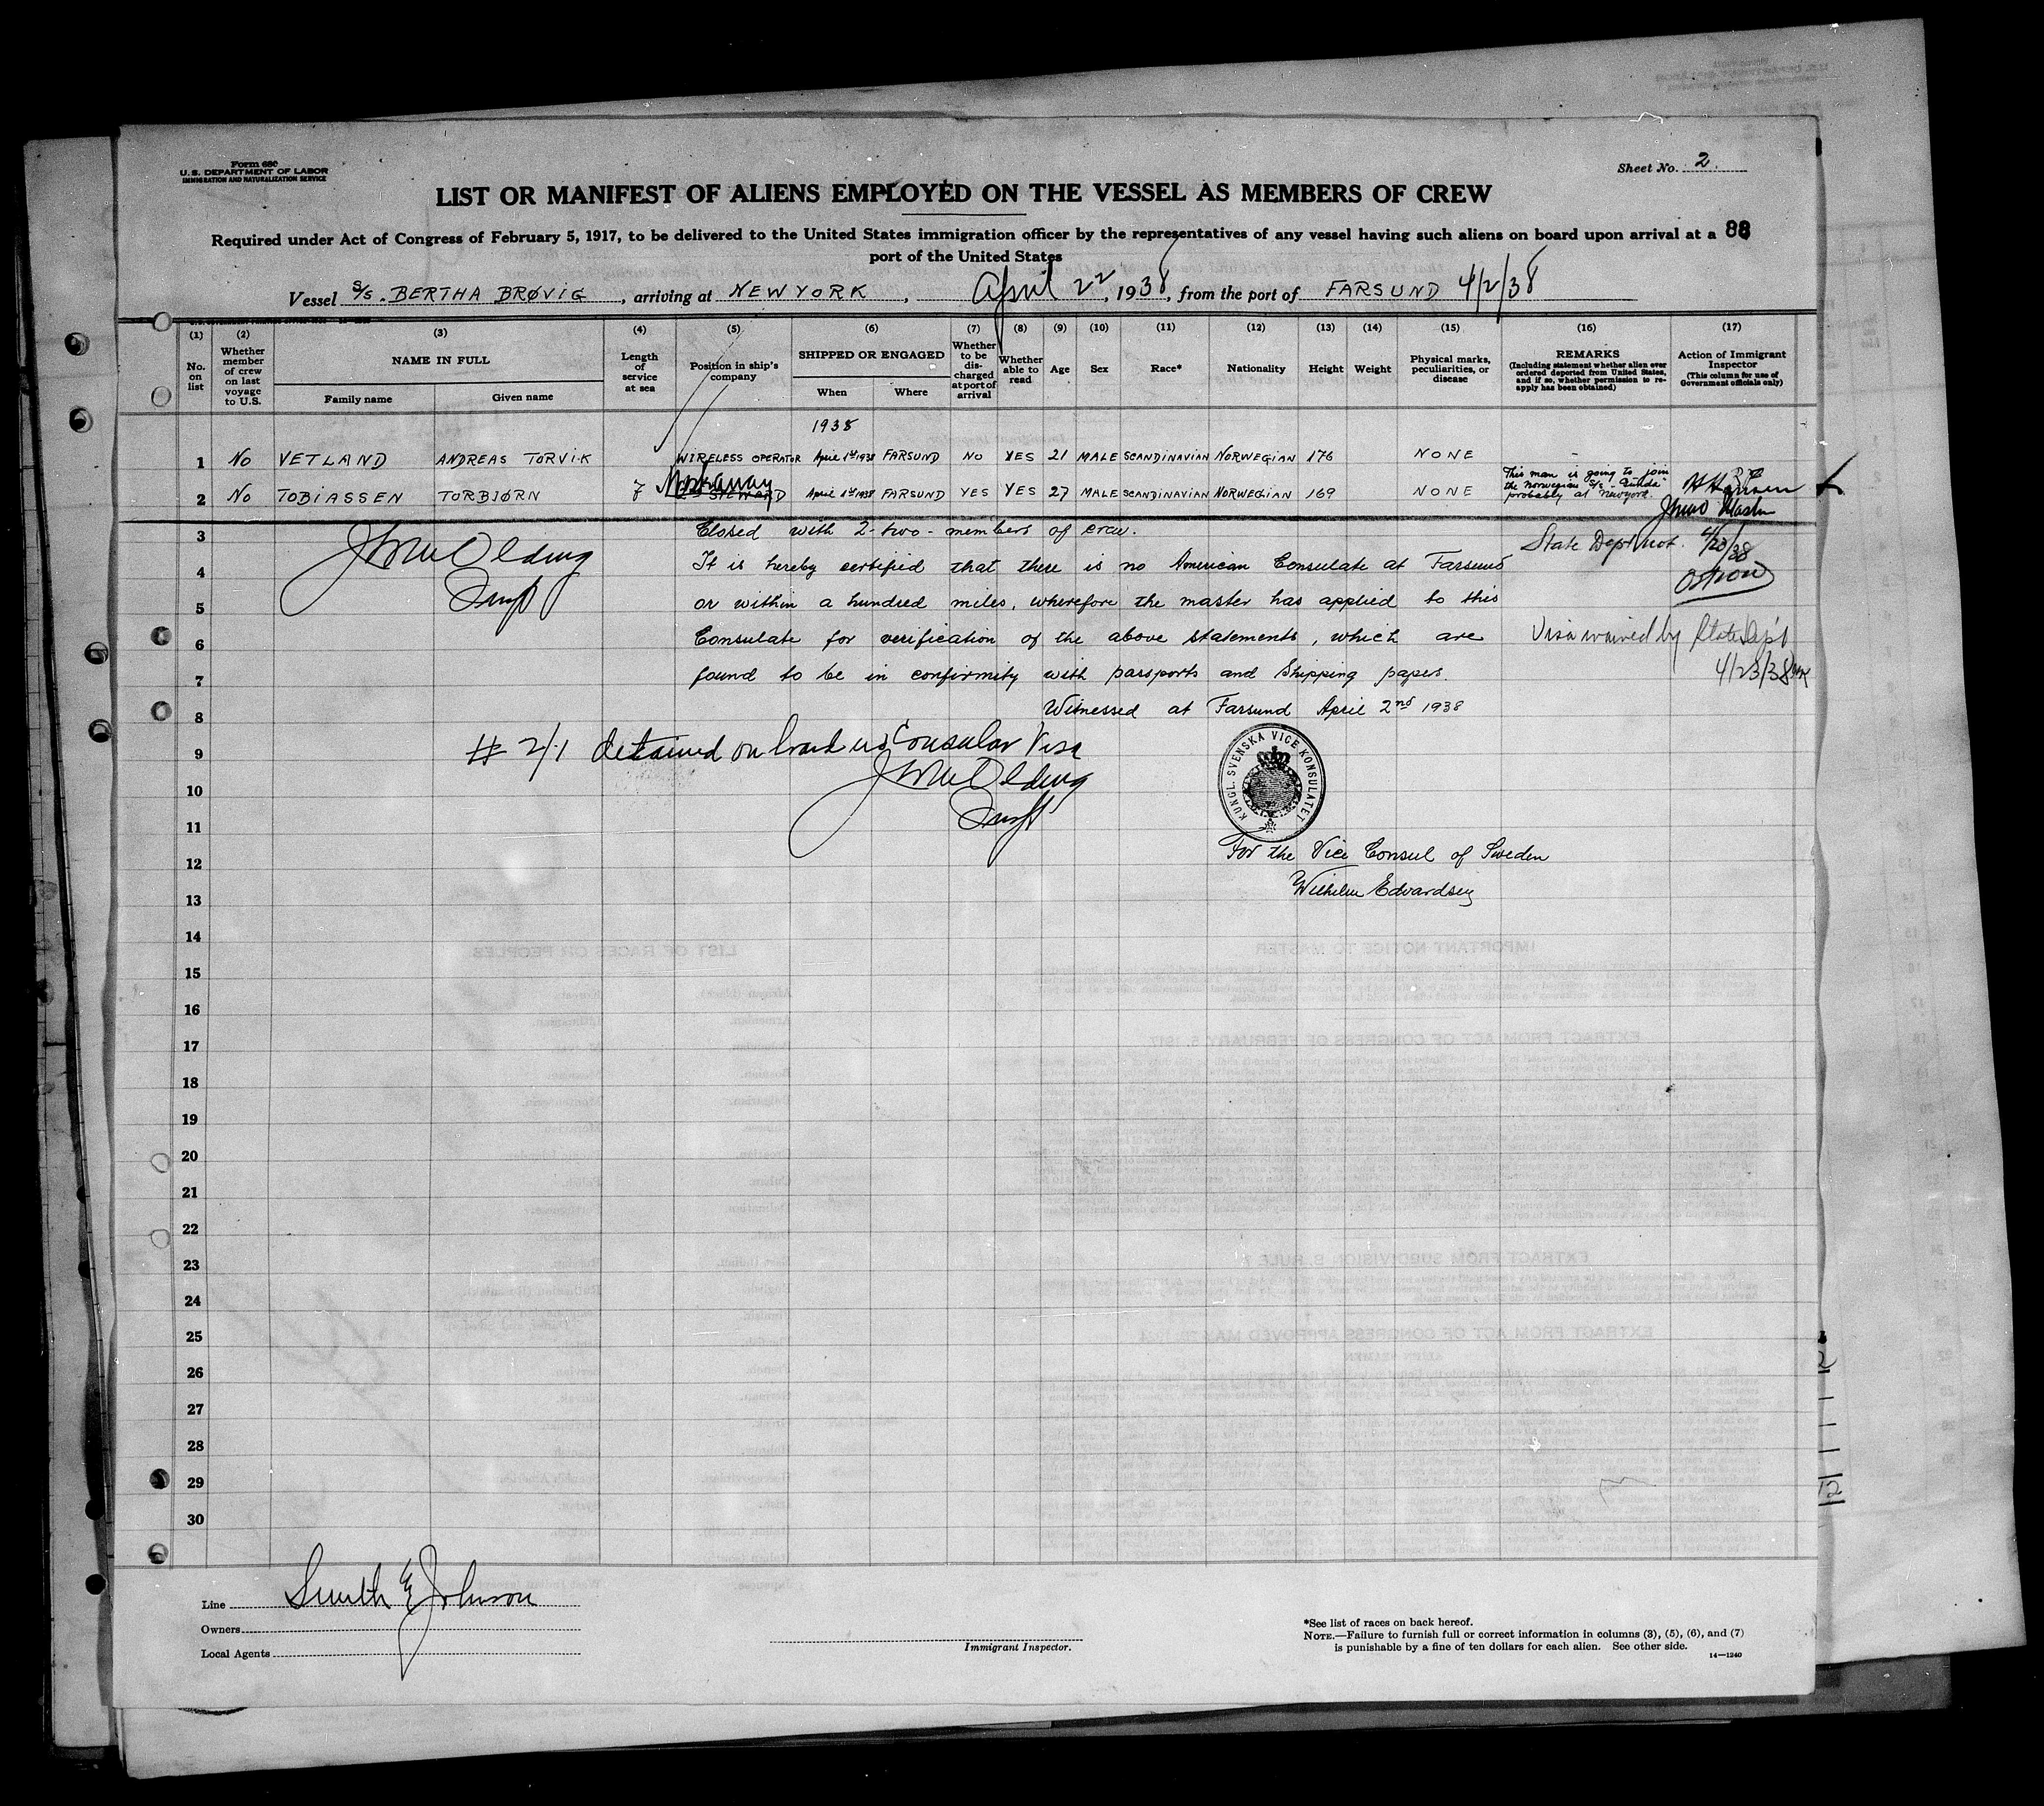 Form 680
U. S. DEPARTMENT OF LABOR
IMMIGRATION AND NATURALIZATION SERVICE
Sheet No. 2
LIST OR MANIFEST OF ALIENS EMPLOYED ON THE VESSEL AS MEMBERS OF CREW
Required under Act of Congress of February 5, 1917, to be delivered to the United States immigration officer by the representatives of any vessel having such aliens on board upon arrival at a
port of the United States
88
Vessel S/S. BERTHA BRØVIG, arriving at NEW YORK, April 22, 1938, from the port of FARSUND 4/2/38
(1) (2) (3) (4) (5) (6) (7) (8) (9) (10) (11) (12) (13) (14) (15) (16) (17)
No. on list
Whether member of crew on last voyage to U.S.
NAME IN FULL
Family name
Given name
Length of service at sea
Position in ship's company
SHIPPED OR ENGAGED
When
Where
Whether to be discharged at port of arrival
Whether able to read
Age
Sex
Race*
Nationality
Height
Weight
Physical marks, peculiarities, or disease
REMARKS
(Including statement whether alien ever ordered deported from United States, and if so, whether permission to reapply has been obtained)
Action of Immigrant Inspector
(This column for use of Government officials only)
1938
1 No VETLAND ANDREAS TORVIK WIRELESS OPERATOR April 1st 1938 FARSUND NO YES 21 MALE SCANDINAVIAN NORWEGIAN 176 NONE -
2 No TOBIASSEN TORBJØRN 7 Workaway STEWARD April 1st 1938 FARSUND YES YES 27 MALE SCANDINAVIAN NORWEGIAN 169 NONE
This man is going to join
the Norwegian S/S
probably at Newyork.
Master
3 Closed with 2-two- members of crew.
State Dept not. 4/23/38
4 It is hereby certified that there is no American Consulate at Farsund
5 or within a hundred miles, wherefore the master has applied to this
6 Consulate for verification of the above statements, which are
Visa waived by State Dep't
4/23/38
7 found to be in conformity with passports and Shipping papers.
8 Witnessed at Farsund April 2nd 1938
9 # 2/1 detained on board no Consular Visa
KUNGL. SVENSKA VICE KONSULATET
10
11
12 For the Vice Consul of Sweden
13 Wilhelm Edvardsen
14
15
16
17
18
19
20
21
22
23
24
25
26
27
28
29
30
Line Smith & Johnson
Owners
Local Agents
Immigrant Inspector.
*See list of races on back hereof.
NOTE.—Failure to furnish full or correct information in columns (3), (5), (6), and (7)
is punishable by a fine of ten dollars for each alien. See other side.
14—1240